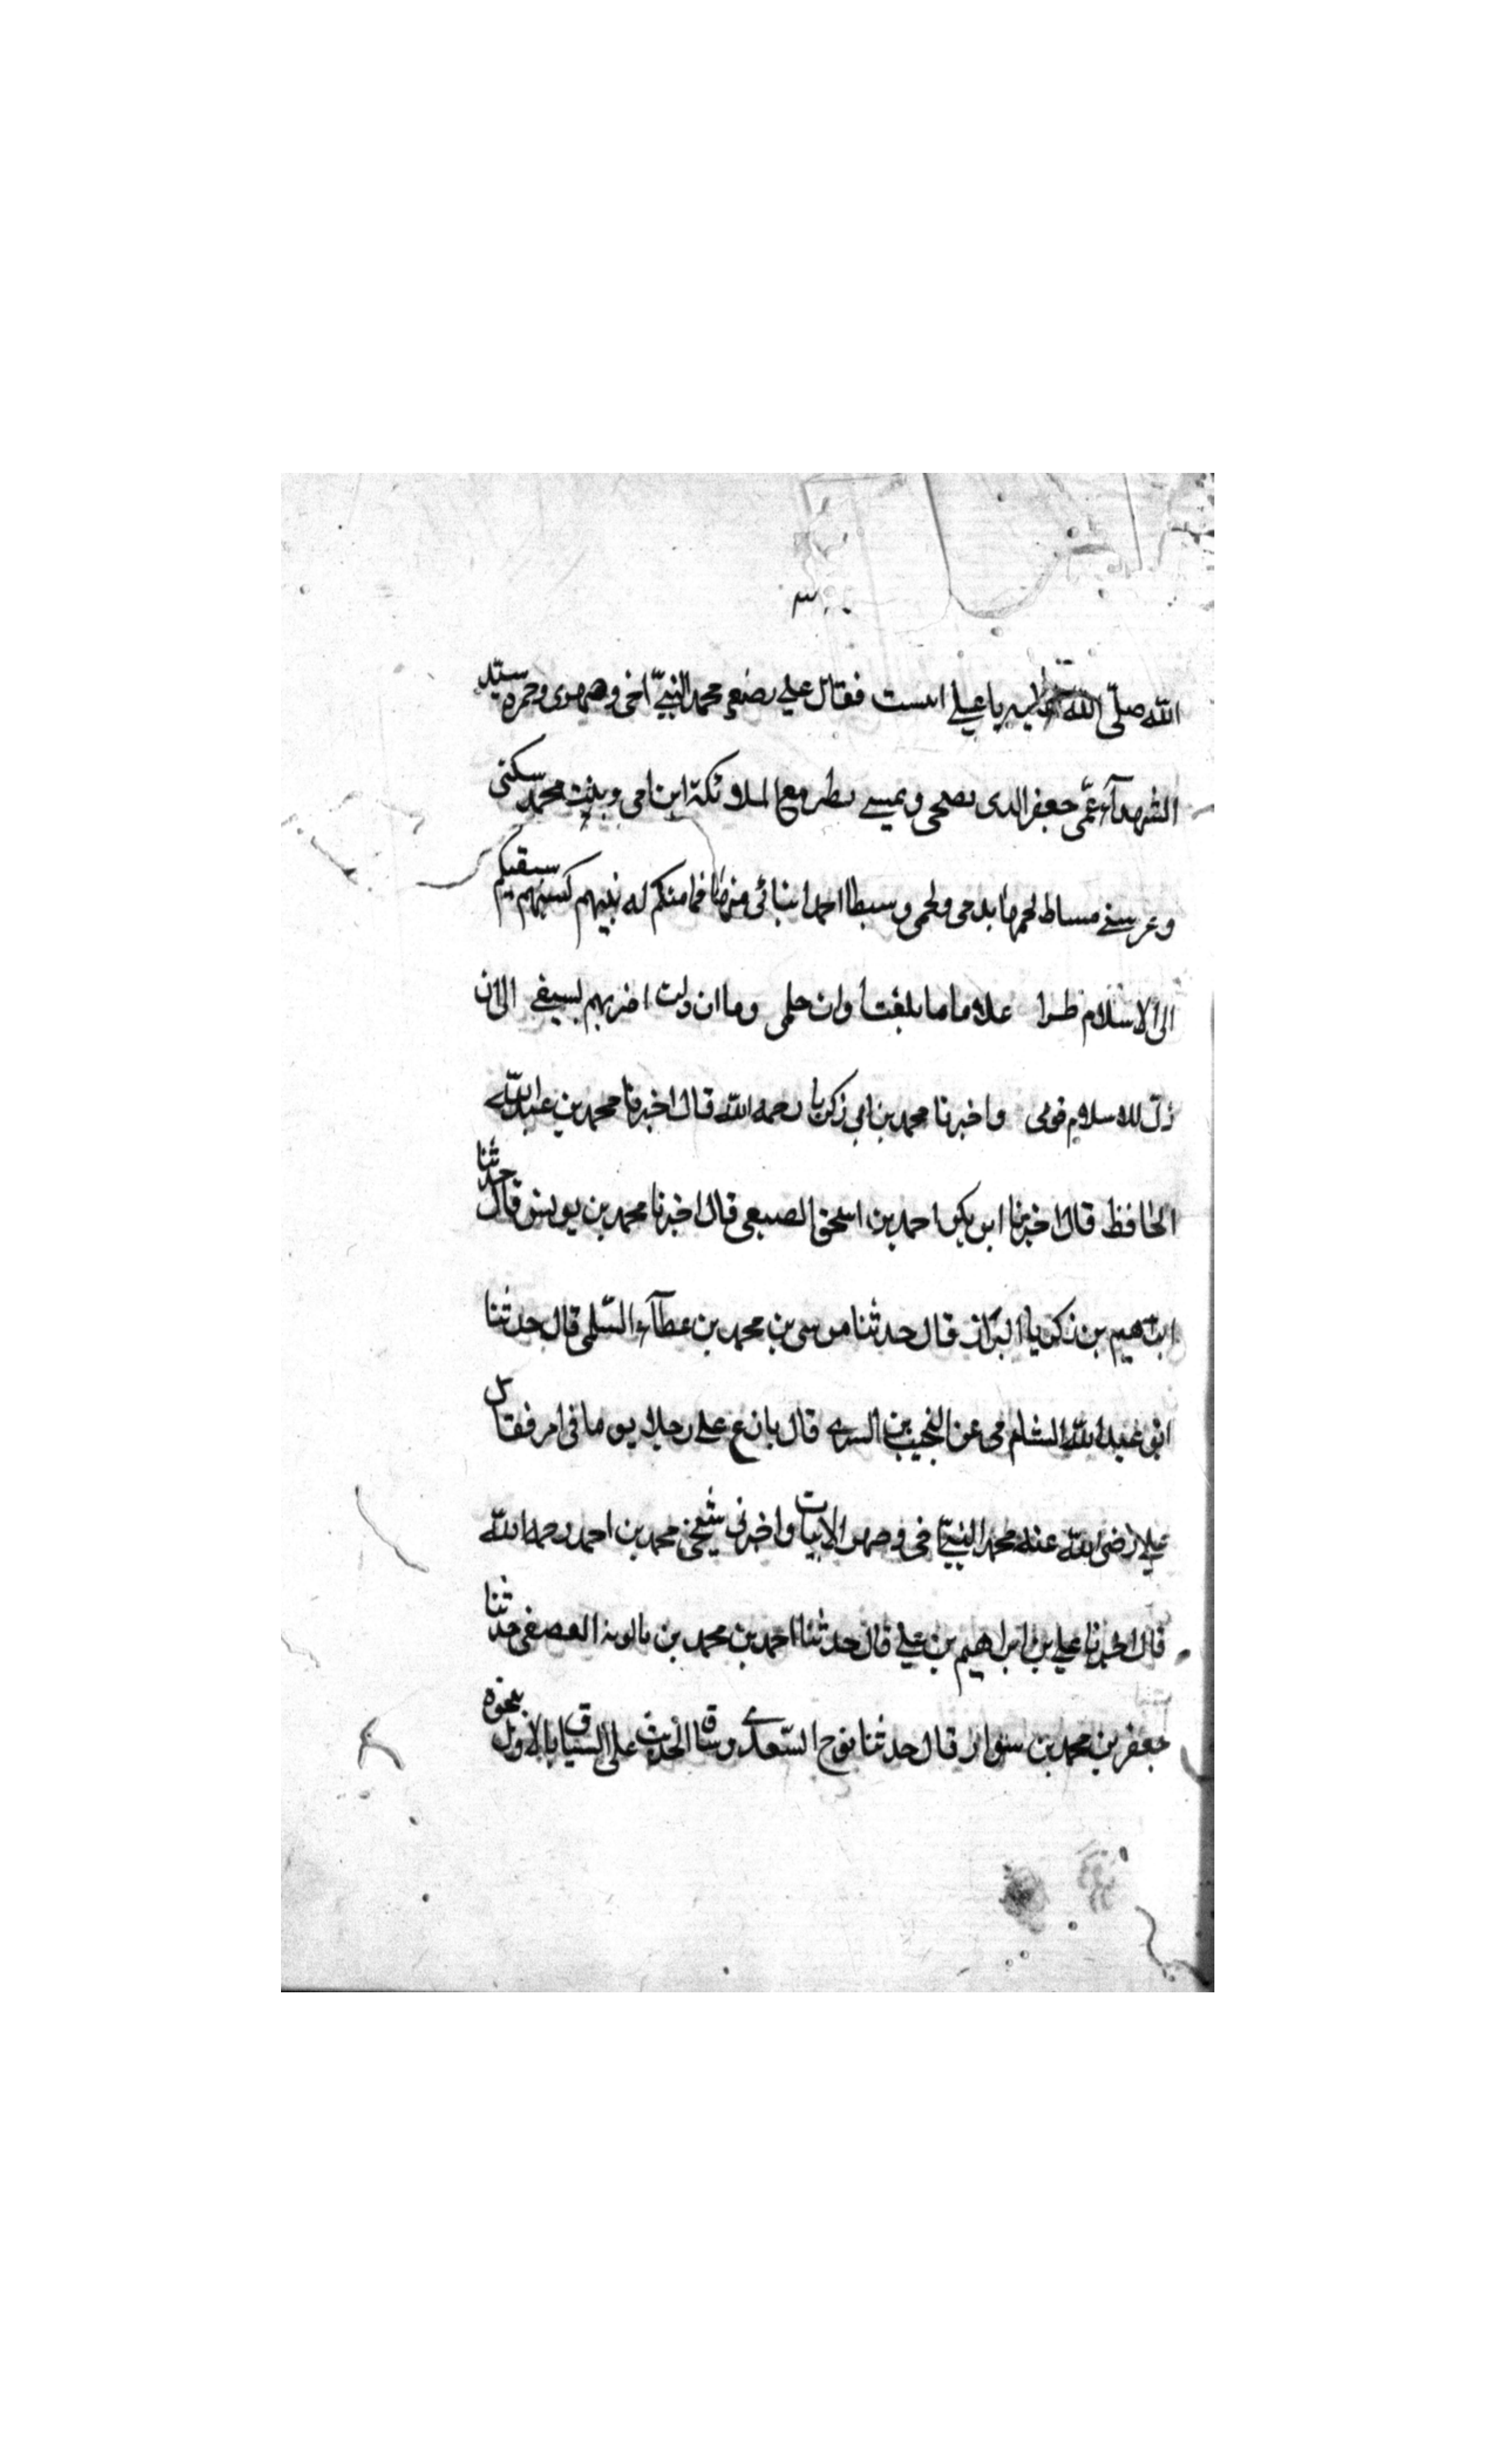 الله صلّى الله عليه يا علي است فقال علي رضع محمد النبيّ اخى وصهرى وحمزه سيّد
الشهدآء عمّى جعفر الدى يصحى ويميسے يطير مع الملائكة ابن امى وبنت محمد سكنى
وعرسے مساط لحمها بدمى ولحمى وسبطا احمد ابنائى منها فما منكم له نبيهم كسهم سبقتكم
الى الاسلام طرا علاما ما بلغت اوان حلمى وما ان ولت اضربهم بسيفى الى ان
ذل للاسلام قومى واخبرنا محمد بن ابى زكريا رحمه الله قال اخبرنا محمد بن عبد الله
الحافظ قال اخبرنا ابو بكر احمد بن اسحق الصبعى قال اخبرنا محمد بن يونس قال حدثنا
ابراهيم بن زكريا البزاز قال حدثنا موسى بن محمد بن عطآء السّلمى قال حدثنا
ابو عبد الله الشامى عن النجيب بن السرے قال بازع على رجلا يوما فى امر فقال
على رضى الله عنه محمد النبيّ اخى وصهرى الابيات واخبرنى شيخى محمد بن احمد رحمه الله
قال اخبرنا على بن ابراهيم بن على قال حدثنا احمد بن محمد بن بالويه العصفى حدثنا
جعفر بن محمد بن سوار قال حدثنا نوح السّعدے وساق الحديث على السياق بالاول بنحوه